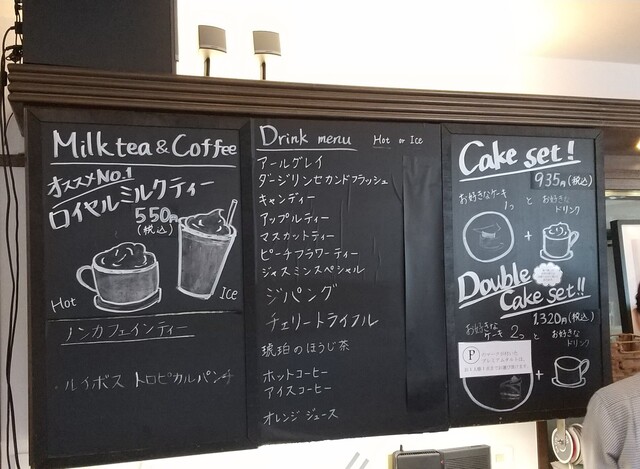 Milk tea & Coffee
オススメNo.1
ロイヤルミルクティー
550円
(税込)
Hot
Ice
ノンカフェインティー
ルイボス トロピカルパンチ
Drink menu Hot or Ice
アールグレイ
ダージリンセカンドフラッシュ
キャンディー
アップルティー
マスカットティー
ピーチフラワーティー
ジャスミンスペシャル
ジパング
チェリートライフル
琥珀のほうじ茶
ホットコーヒー
アイスコーヒー
オレンジジュース
Cake set!
935円(税込)
お好きなケーキ
1つ と お好きな
ドリンク
+
Double
Cake set!!
1,320円(税込)
お好きな
ケーキ 2つ と お好きな
ドリンク
P
+